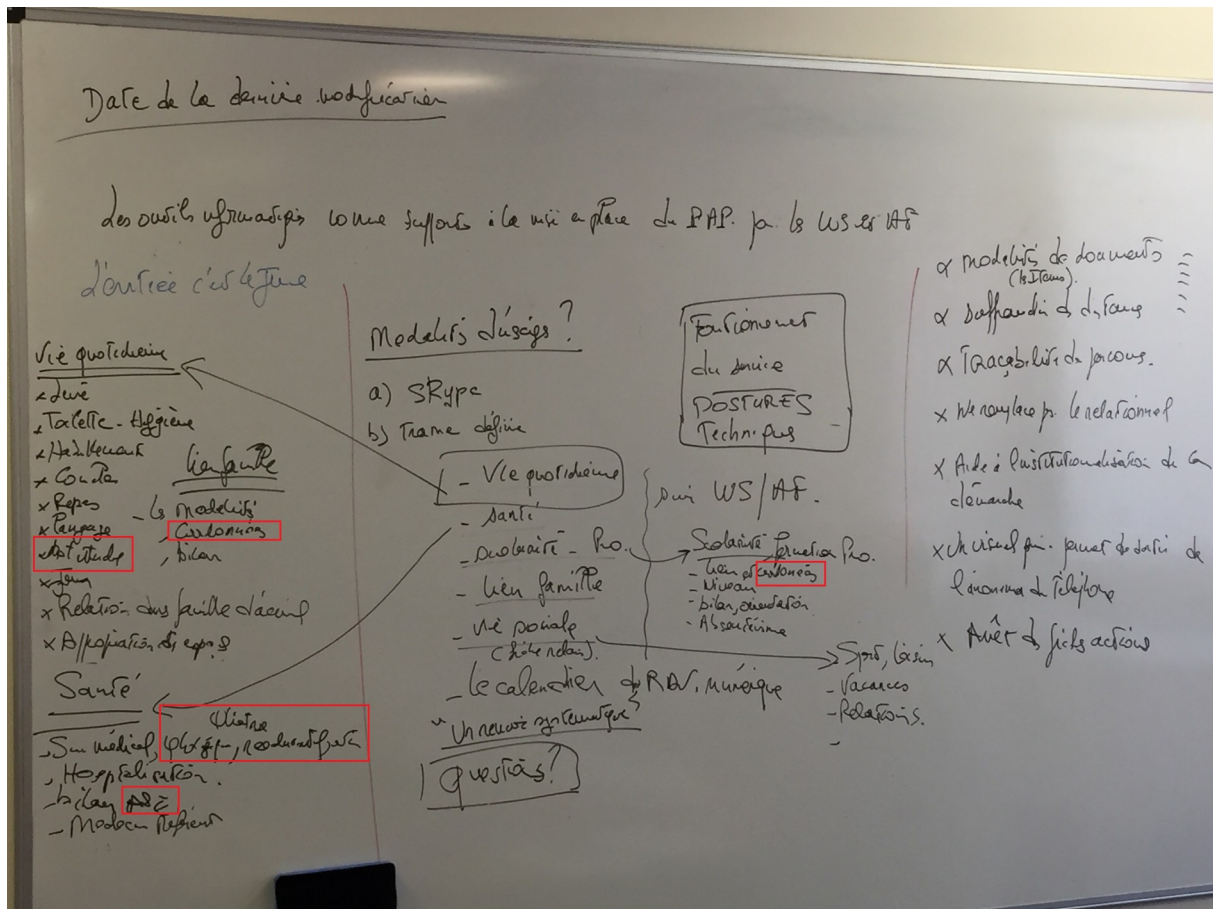 Date de la dernière modification
Les outils informatiques comme supports à la mise en place du PAP. par les WS et AF
L'entrée c'est le Jeune
Vie quotidienne
x Levé
x Toilette - Hygiène
x Habillement
x Coucher
x Repas
x Langage
x Attitude
x Jeux
x Relation dans famille d'accueil
x Appropriation
Lien famille
- les modalités
, bilan
Santé
- Suivi médical,
, Hospitalisation.
- bilan ASE
- Médecin Référent
Modalités d'usages ?
a) SKype
b) Trame définie
- Vie quotidienne
- Santé
- Scolarité - Pro.
- Lien famille
- Vie sociale
- Le calendrier de RDV. numérique
"Un renvoi systématique"
Questions ?
Fonctionnement
du service
POSTURES
Techniques
suivi WS/AF.
Scolarité formation Pro.
- Lien et
- Niveau
- bilan, orientation
- Absentéisme
Sport, Loisirs
- Vacances
- Relations.
-
α modalités de documents
(les Items).
α
α Traçabilité du parcours.
x Ne remplace pas le relationnel
x Aide à l'institutionnalisation de la
démarche
x Un visuel qui permet de sortir de
l'anonymat du Téléphone
x Arrêt des fiches actions